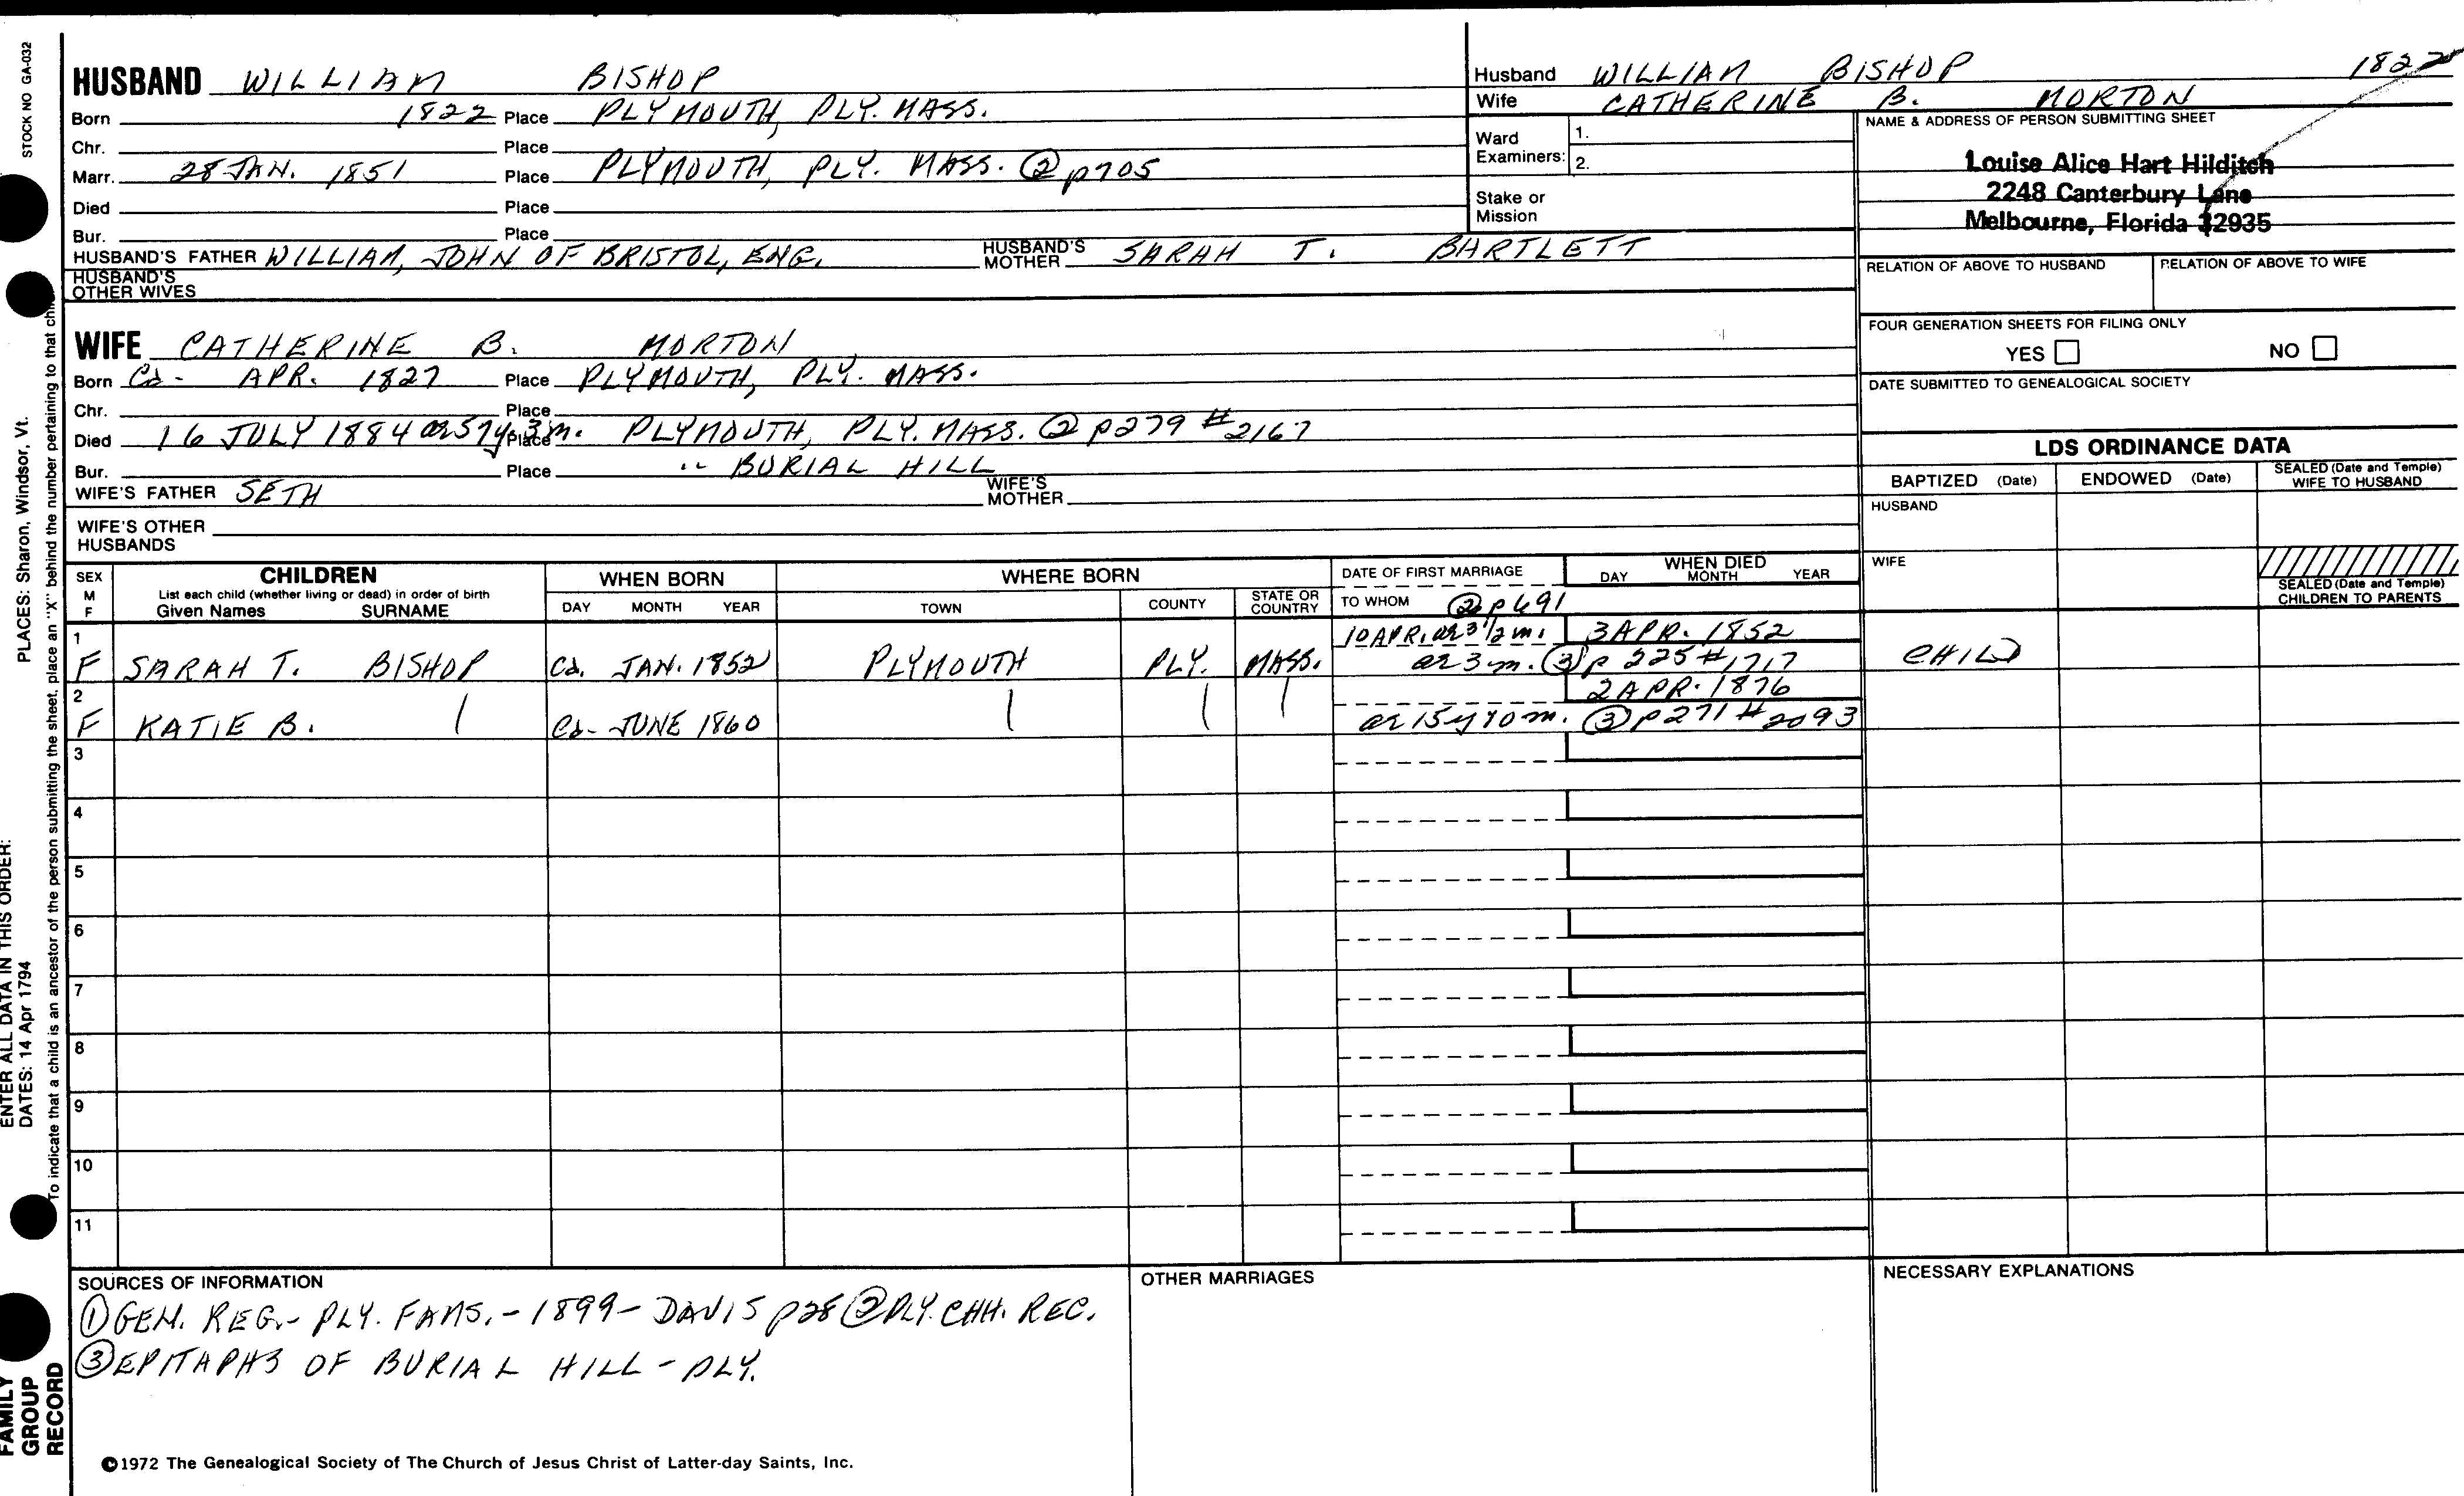 STOCK NO GA-032
HUSBAND WILLIAM BISHOP
Born 1822 Place PLYMOUTH, PLY. MASS.
Chr. Place
Marr. 28 JAN. 1851 Place PLYMOUTH, PLY. MASS. ② p705
Died Place
Bur. Place
HUSBAND'S FATHER WILLIAM, JOHN OF BRISTOL, ENG. HUSBAND'S MOTHER SARAH T. BARTLETT
HUSBAND'S OTHER WIVES
WIFE CATHERINE B. MORTON
Born Ca- APR. 1827 Place PLYMOUTH, PLY. MASS.
Chr. Place
Died 16 JULY 1884 ae 57y 3m. Place PLYMOUTH, PLY. MASS. ② p279 #2167
Bur. Place " BURIAL HILL
WIFE'S FATHER SETH WIFE'S MOTHER
WIFE'S OTHER HUSBANDS
Husband WILLIAM BISHOP 1822
Wife CATHERINE B. MORTON
Ward Examiners: 1.
2.
Stake or Mission
NAME & ADDRESS OF PERSON SUBMITTING SHEET
Louise Alice Hart Hilditch
2248 Canterbury Lane
Melbourne, Florida 32935
RELATION OF ABOVE TO HUSBAND RELATION OF ABOVE TO WIFE
FOUR GENERATION SHEETS FOR FILING ONLY
YES NO
DATE SUBMITTED TO GENEALOGICAL SOCIETY
LDS ORDINANCE DATA
BAPTIZED (Date) ENDOWED (Date) SEALED (Date and Temple) WIFE TO HUSBAND
HUSBAND
WIFE
SEALED (Date and Temple) CHILDREN TO PARENTS
SEX M F CHILDREN List each child (whether living or dead) in order of birth Given Names SURNAME WHEN BORN DAY MONTH YEAR WHERE BORN TOWN COUNTY STATE OR COUNTRY DATE OF FIRST MARRIAGE TO WHOM ② p691 WHEN DIED DAY MONTH YEAR
1 10 APR. ae 3 1/2 m. 3 APR. 1852
F SARAH T. BISHOP Ca. JAN. 1852 PLYMOUTH PLY. MASS. ae 3 m. ③ p 225 #1717 CHILD
2 2 APR. 1876
F KATIE B. | Ca- JUNE 1860 | | | ae 15y 10m. ③ p271 #2093
3
4
5
6
7
8
9
10
11
SOURCES OF INFORMATION
① GEN. REG.- PLY. FAMS. - 1899 - DAVIS p28 ② PLY. CHH. REC.
③ EPITAPHS OF BURIAL HILL - PLY.
OTHER MARRIAGES
NECESSARY EXPLANATIONS
©1972 The Genealogical Society of The Church of Jesus Christ of Latter-day Saints, Inc.
PLACES: Sharon, Windsor, Vt.
ENTER ALL DATA IN THIS ORDER:
DATES: 14 Apr 1794
To indicate that a child is an ancestor of the person submitting the sheet, place an "X" behind the number pertaining to that child.
FAMILY
GROUP
RECORD